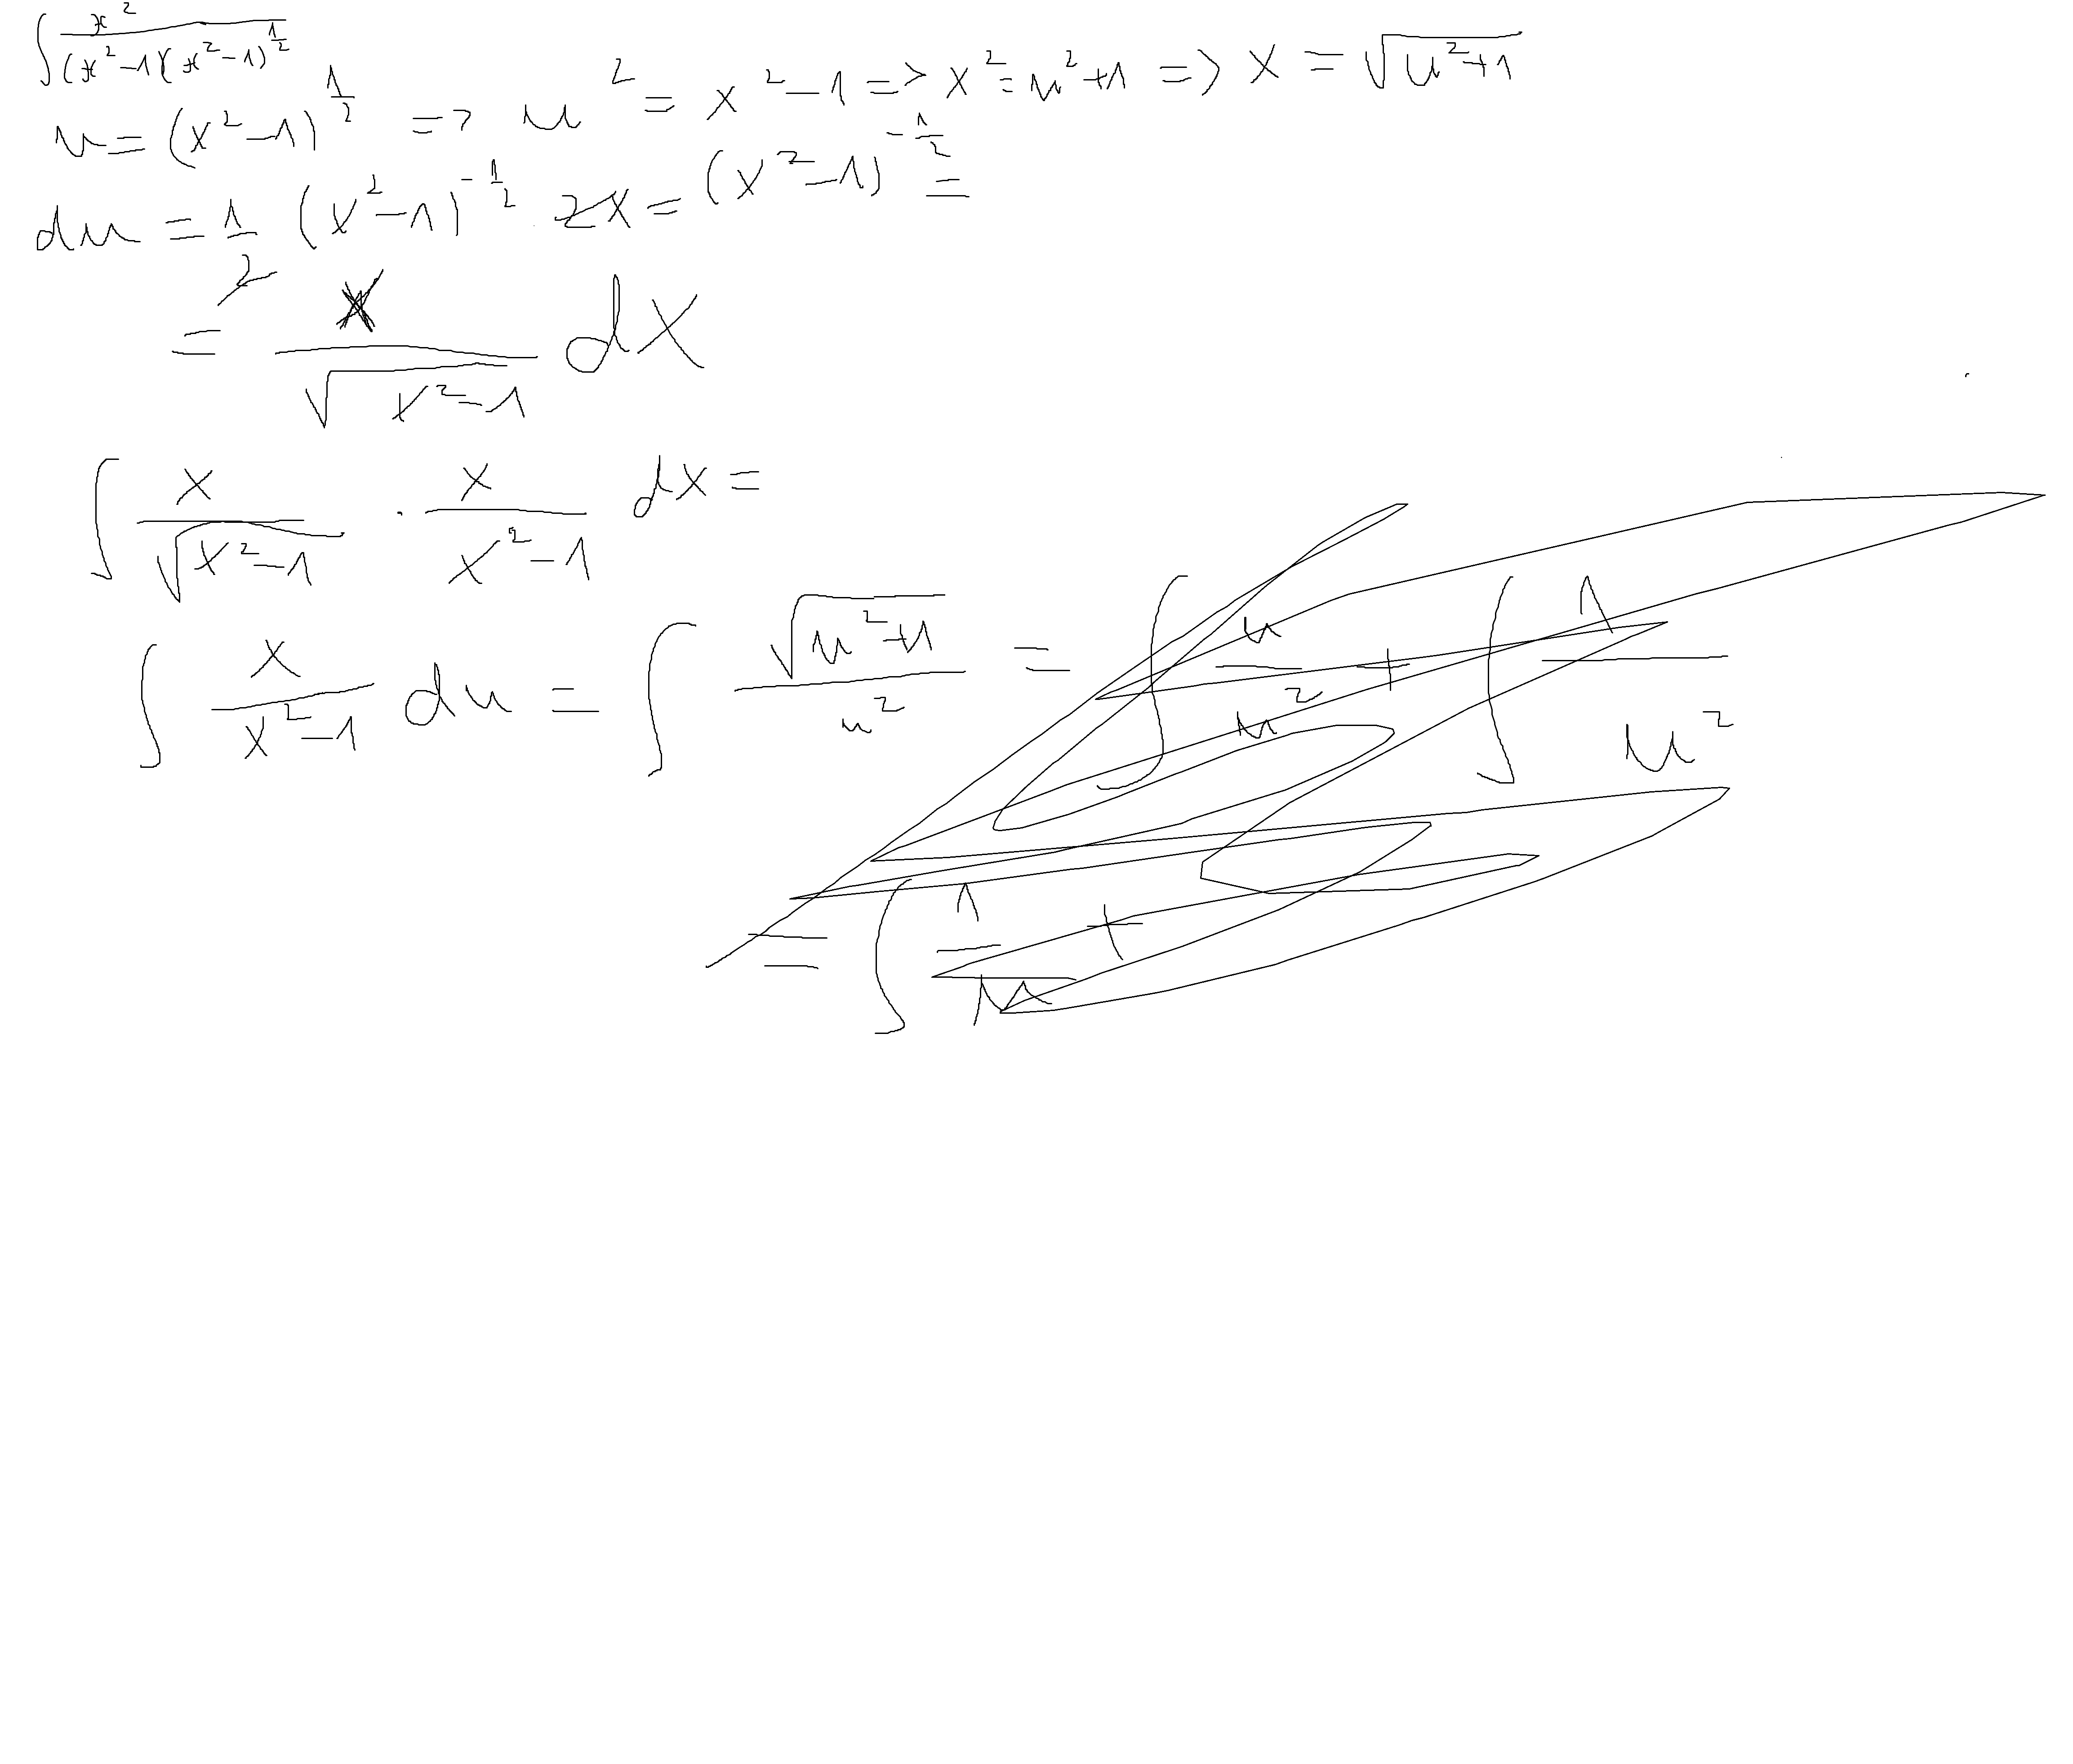 ∫ x² / (x²-1)(x²-1)^(1/2)
u = (x²-1)^(1/2) => u² = x²-1 => x² = u²+1 => x = √(u²+1)
du = 1/2 (x²-1)^(-1/2) 2x = (x²-1)^(-1/2) =
= x / √(x²-1) dx
∫ x / √(x²-1) · x / (x²-1) dx =
∫ x / (x²-1) du = ∫ √(u²+1) / u² = ∫ u / u² + ∫ 1 / u²
= ∫ 1 / u +